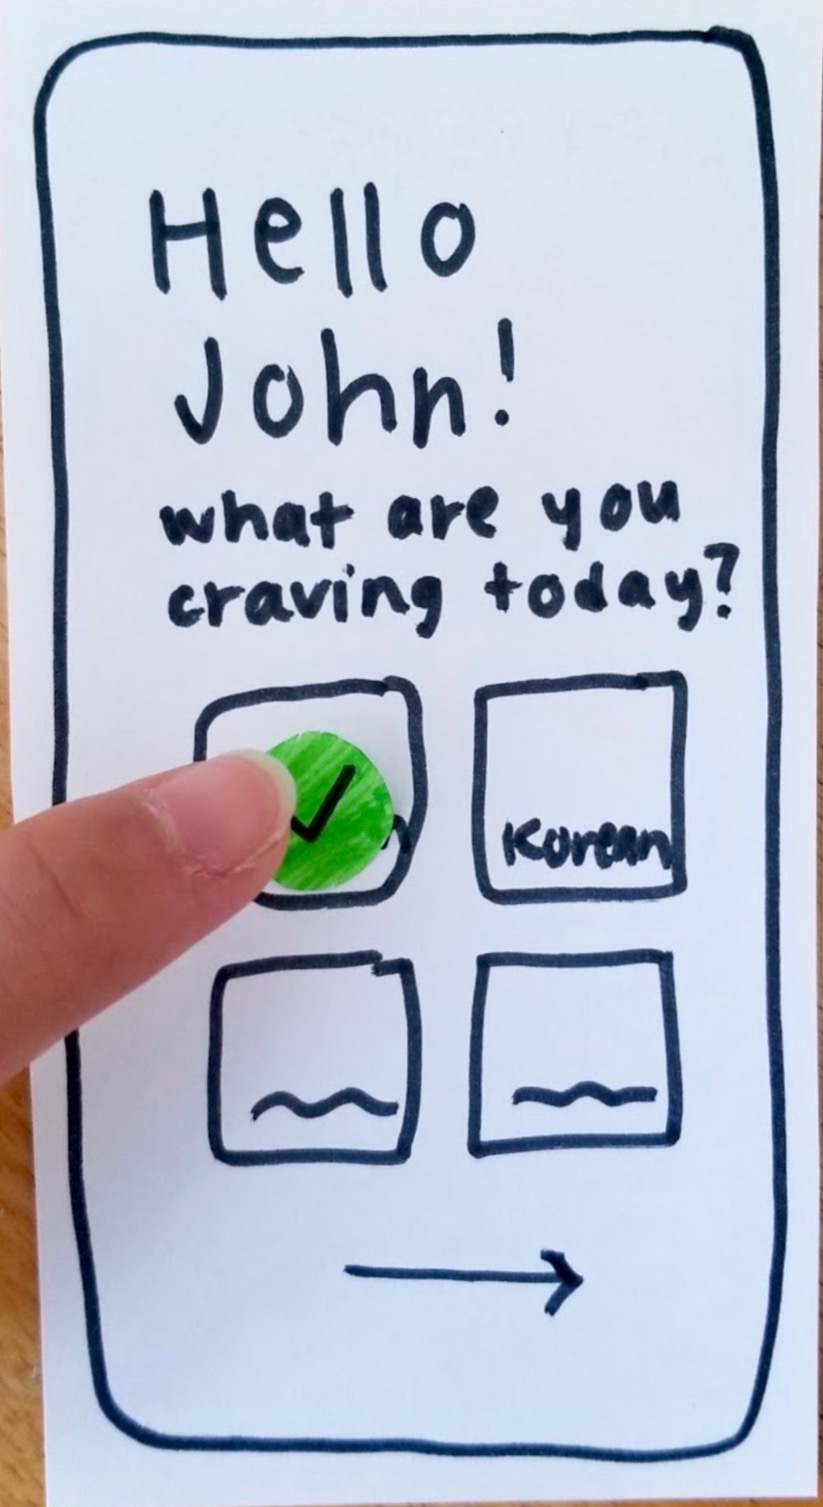 Hello
John!
what are you
craving today?
Korean